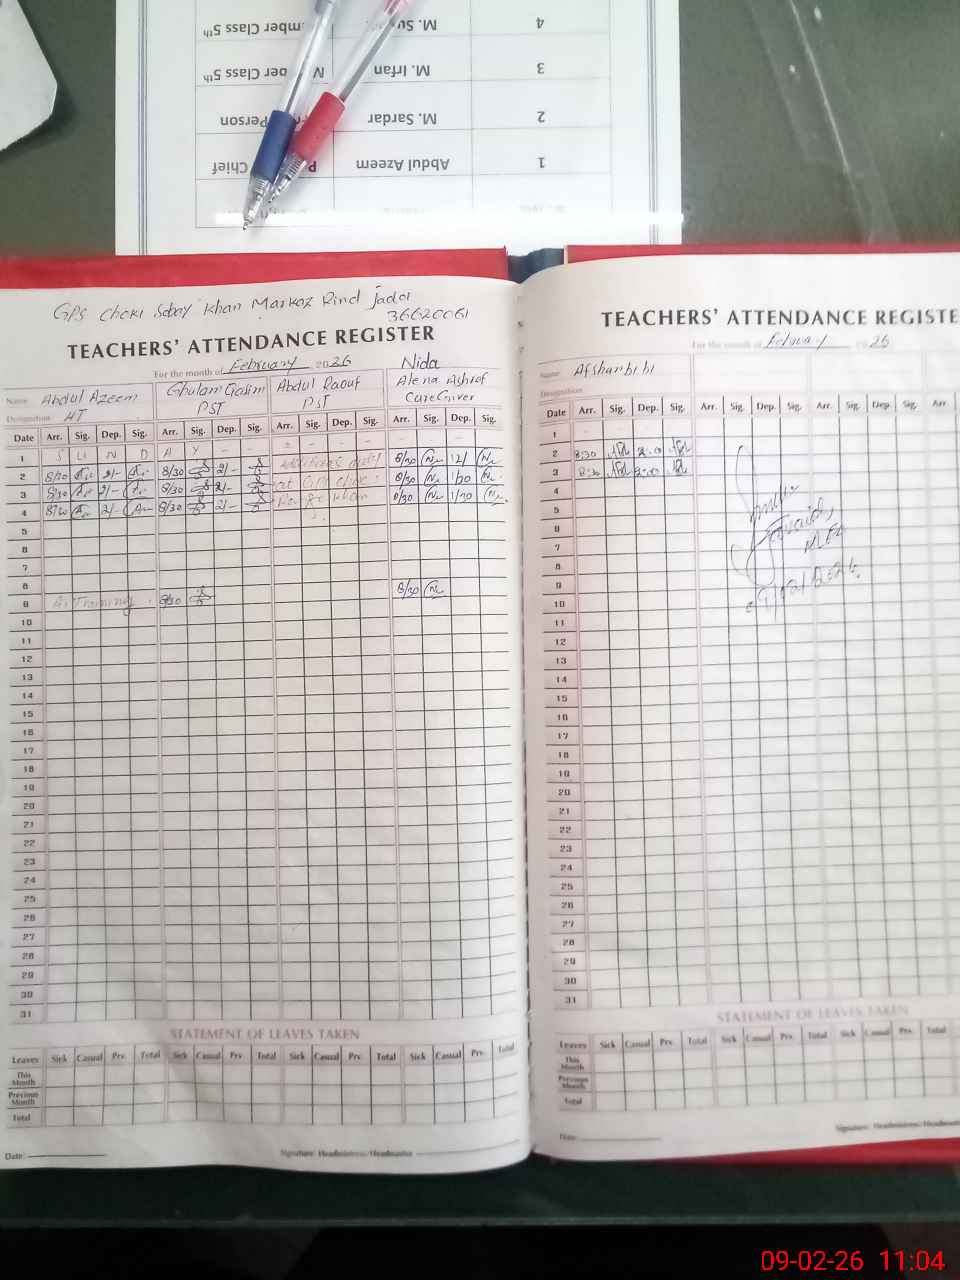 4 M. Su mber Class 5th
3 M. Irfan ber Class 5th
2 M. Sardar Person
1 Abdul Azeem Chief
GPS Choki Sobay Khan Markaz Rind Jada
36620061
TEACHERS' ATTENDANCE REGISTER
For the month of February 2026
Name Abdul Azeem Ghulam Qasim Abdul Raouf Nida Alena Ashraf
Designation HT PST PST Care Giver
Date Arr. Sig. Dep. Sig. Arr. Sig. Dep. Sig. Arr. Sig. Dep. Sig. Arr. Sig. Dep. Sig.
1 S U N D A Y - - - - - -
2 8/30 2/- 8/30 2/- 8/30 12/
3 8/30 2/- 8/30 2/- at 8/30 1/30
4 8/30 2/- 8/30 2/- Khan 8/30 1/30
5
6
7
8 8/30
9 At Training 8/30
10
11
12
13
14
15
16
17
18
19
20
21
22
23
24
25
26
27
28
29
30
31
STATEMENT OF LEAVES TAKEN
Leaves Sick Casual Prv. Total Sick Casual Prv. Total Sick Casual Prv. Total Sick Casual Prv. Total
This Month
Previous Month
Total
Date: Signature: Headmistress/Headmaster
TEACHERS' ATTENDANCE REGISTE
For the month of February 2026
Name Afshan bibi
Designation
Date Arr. Sig. Dep. Sig. Arr. Sig. Dep. Sig. Arr. Sig. Dep. Sig. Arr.
1
2 8:30 2:0
3 8:30 2:0
4
5
6
7
8
9
10
11
12
13
14
15
16
17
18
19
20
21
22
23
24
25
26
27
28
29
30
31
09/02/2026
STATEMENT OF LEAVES TAKEN
Leaves Sick Casual Prv. Total Sick Casual Prv. Total Sick Casual Prv. Total
This Month
Previous Month
Total
Date Signature: Headmistress/Headmaste
09-02-26 11:04